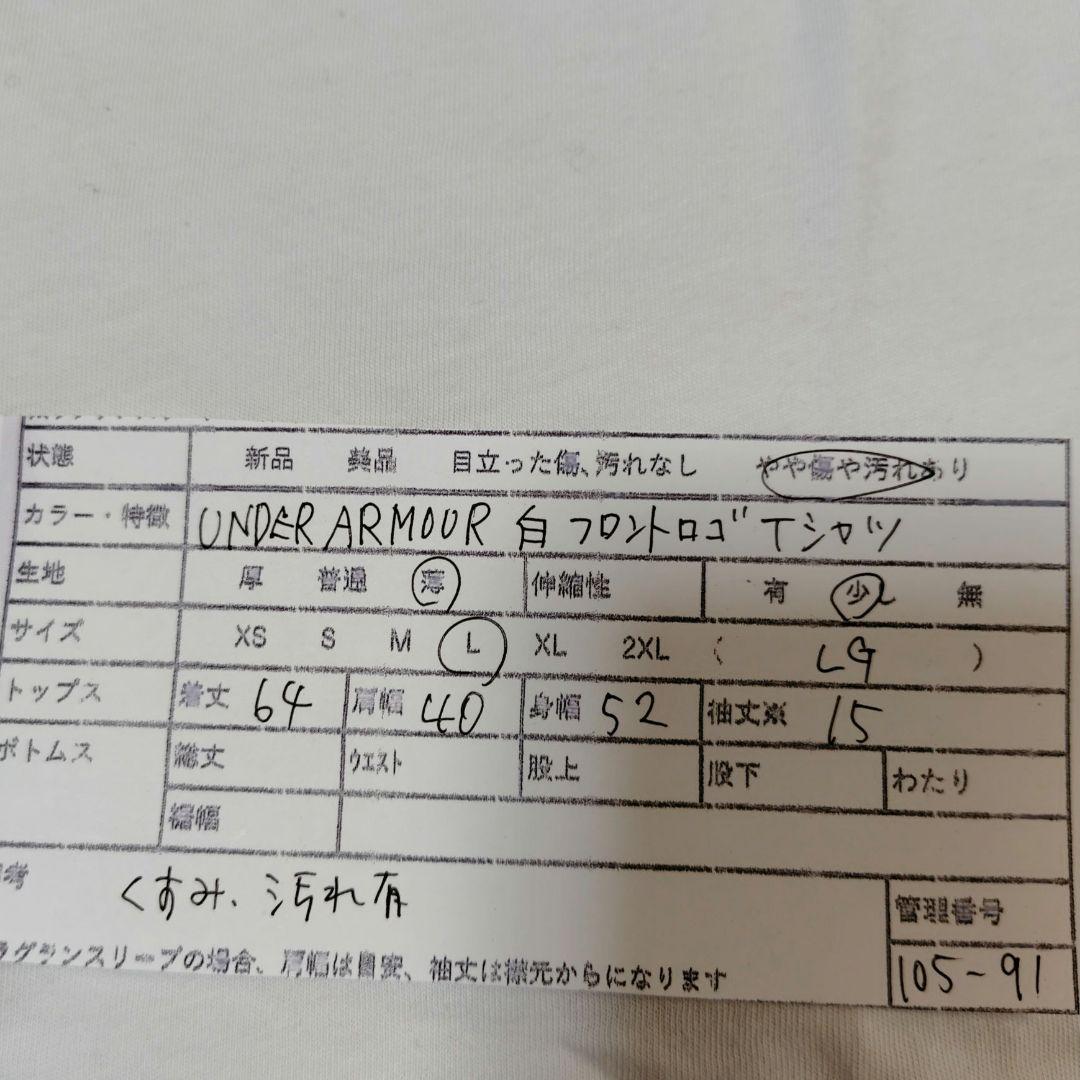 状態 新品 美品 目立った傷、汚れなし やや傷や汚れあり
カラー・特徴 UNDER ARMOUR 白 フロントロゴ Tシャツ
生地 厚 普通 薄 伸縮性 有 少し 無
サイズ XS S M L XL 2XL ( LG )
トップス 着丈 64 肩幅 40 身幅 52 袖丈※ 15
ボトムス 総丈 ウエスト 股上 股下 わたり
裾幅
考 くすみ、汚れ有
管理番号
ラグランスリーブの場合、肩幅は目安、袖丈は襟元からになります
105-91